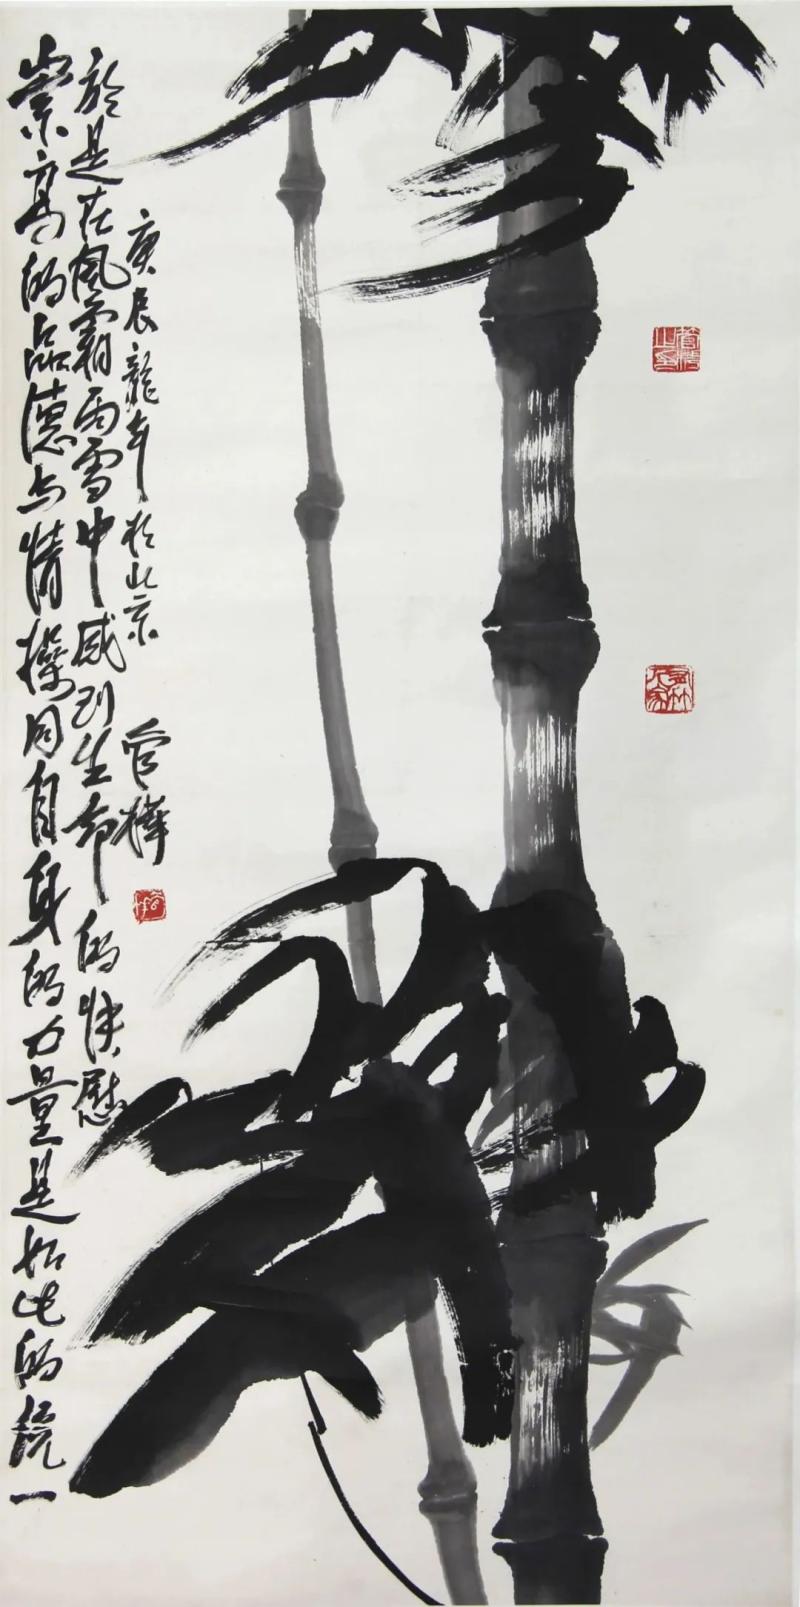 崇高的品德与情操同自身的力量是如此的统一
於是在風霜雨雪中感到生命的快慰
庚辰龍年於北京 管樺